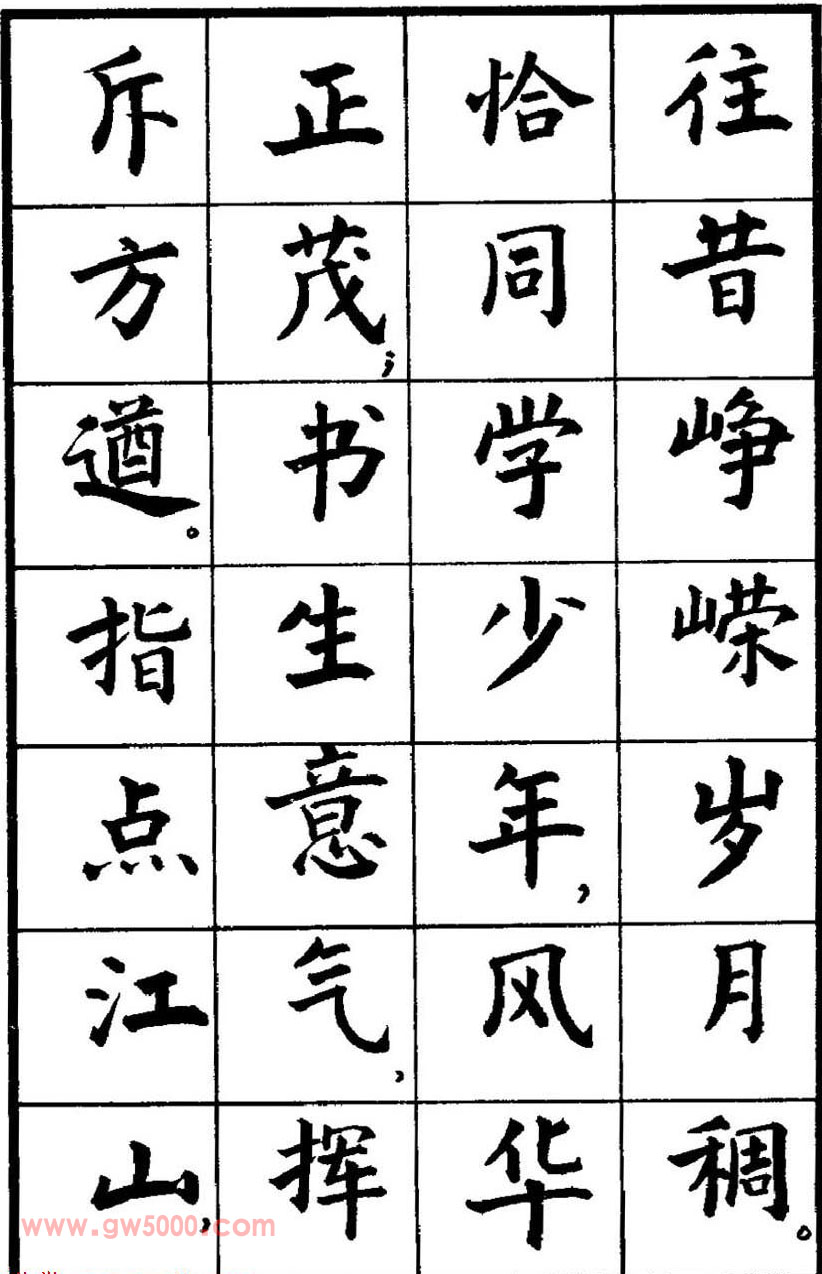 往昔峥嵘岁月稠。
恰同学少年,风华
正茂;书生意气,挥
斥方遒。指点江山,
www.gw5000.com